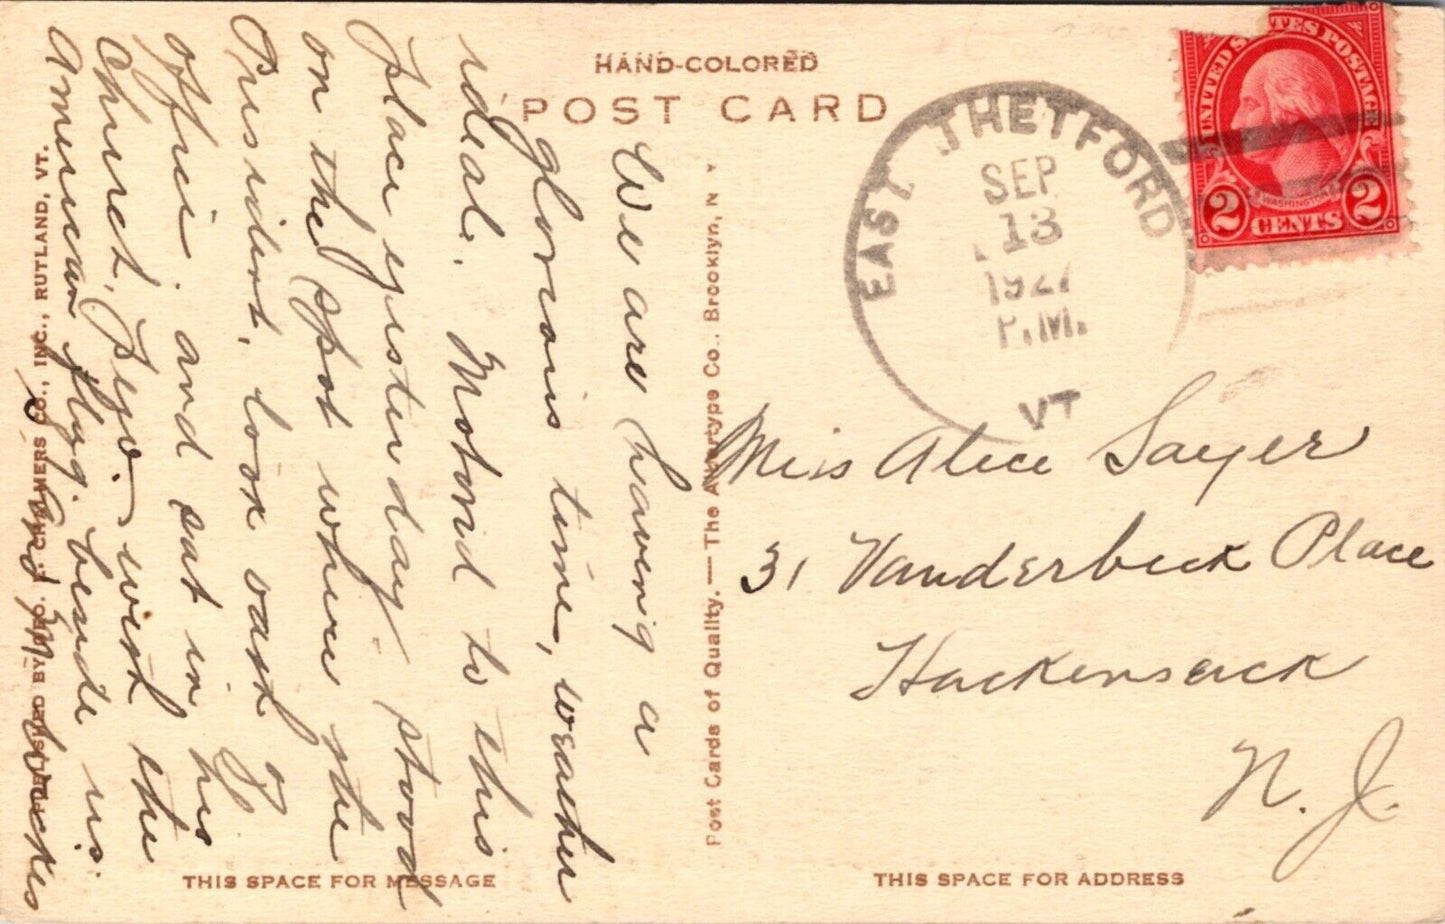 HAND-COLORED
POST CARD
EAST THETFORD
SEP
13
1927
P.M.
VT
UNITED STATES POSTAGE
WASHINGTON
2 CENTS 2
We are having a
glorious time, weather
ideal. Motored to this
place yesterday. stood
on the spot where the
President, took oath of
office. and sat in his
Church, Pew. with the
American flag. beside us.
Post Cards of Quality. — The Albertype Co., Brooklyn, N Y
PUBLISHED BY GEO. E. CHALMERS CO., INC., RUTLAND, VT.
Miss Alice Sayer
31 Vanderbeck Place
Hackensack
N. J.
THIS SPACE FOR MESSAGE
THIS SPACE FOR ADDRESS